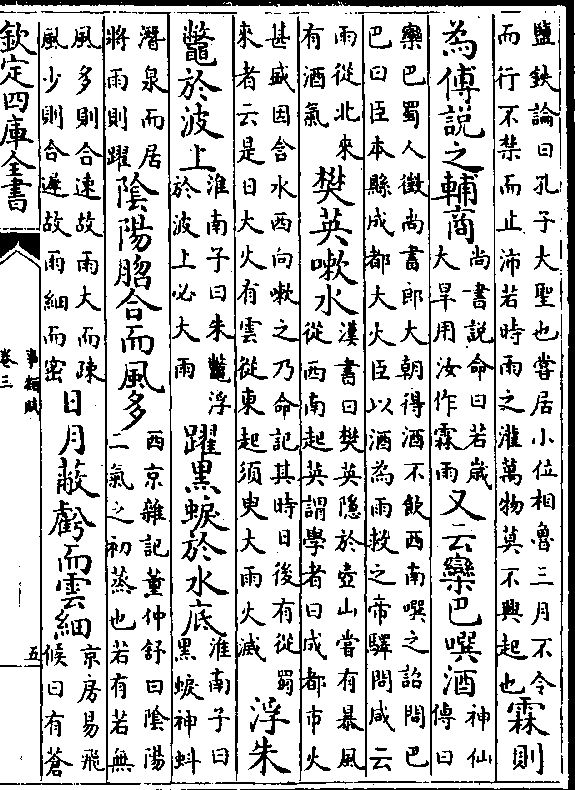 鹽鉄論曰孔子大聖也嘗居小位相魯三月不令
而行不禁而止沛若時雨之灌萬物莫不興起也
霖則
為傅說之輔商
尚書說命曰若歲
大旱用汝作霖雨
又云欒巴噀酒
神仙
傳曰
欒巴蜀人徵尚書郎大朝得酒不飲西南噀之詔問巴
巴曰臣本縣成都大火臣以酒為雨救之帝驛問咸云
雨從北來
有酒氣
樊英嗽水
漢書曰樊英隱於壺山嘗有暴風
從西南起英謂學者曰成都市火
甚盛因含水西向嗽之乃命記其時日後有從蜀
來者云是日大火有雲從東起須臾大雨火滅
浮朱
鼈於波上
淮南子曰朱鼈浮
於波上必大雨
躍黑蜧於水底
淮南子曰
黑蜧神蚪
潛泉而居
將雨則躍
陰陽脗合而風多
西京雜記董仲舒曰陰陽
二氣之初蒸也若有若無
風多則合速故雨大而疎
風少則合遲故雨細而密
日月蔽虧而雲細
京房易飛
候曰有蒼
欽定四庫全書
事類賦
卷三
五